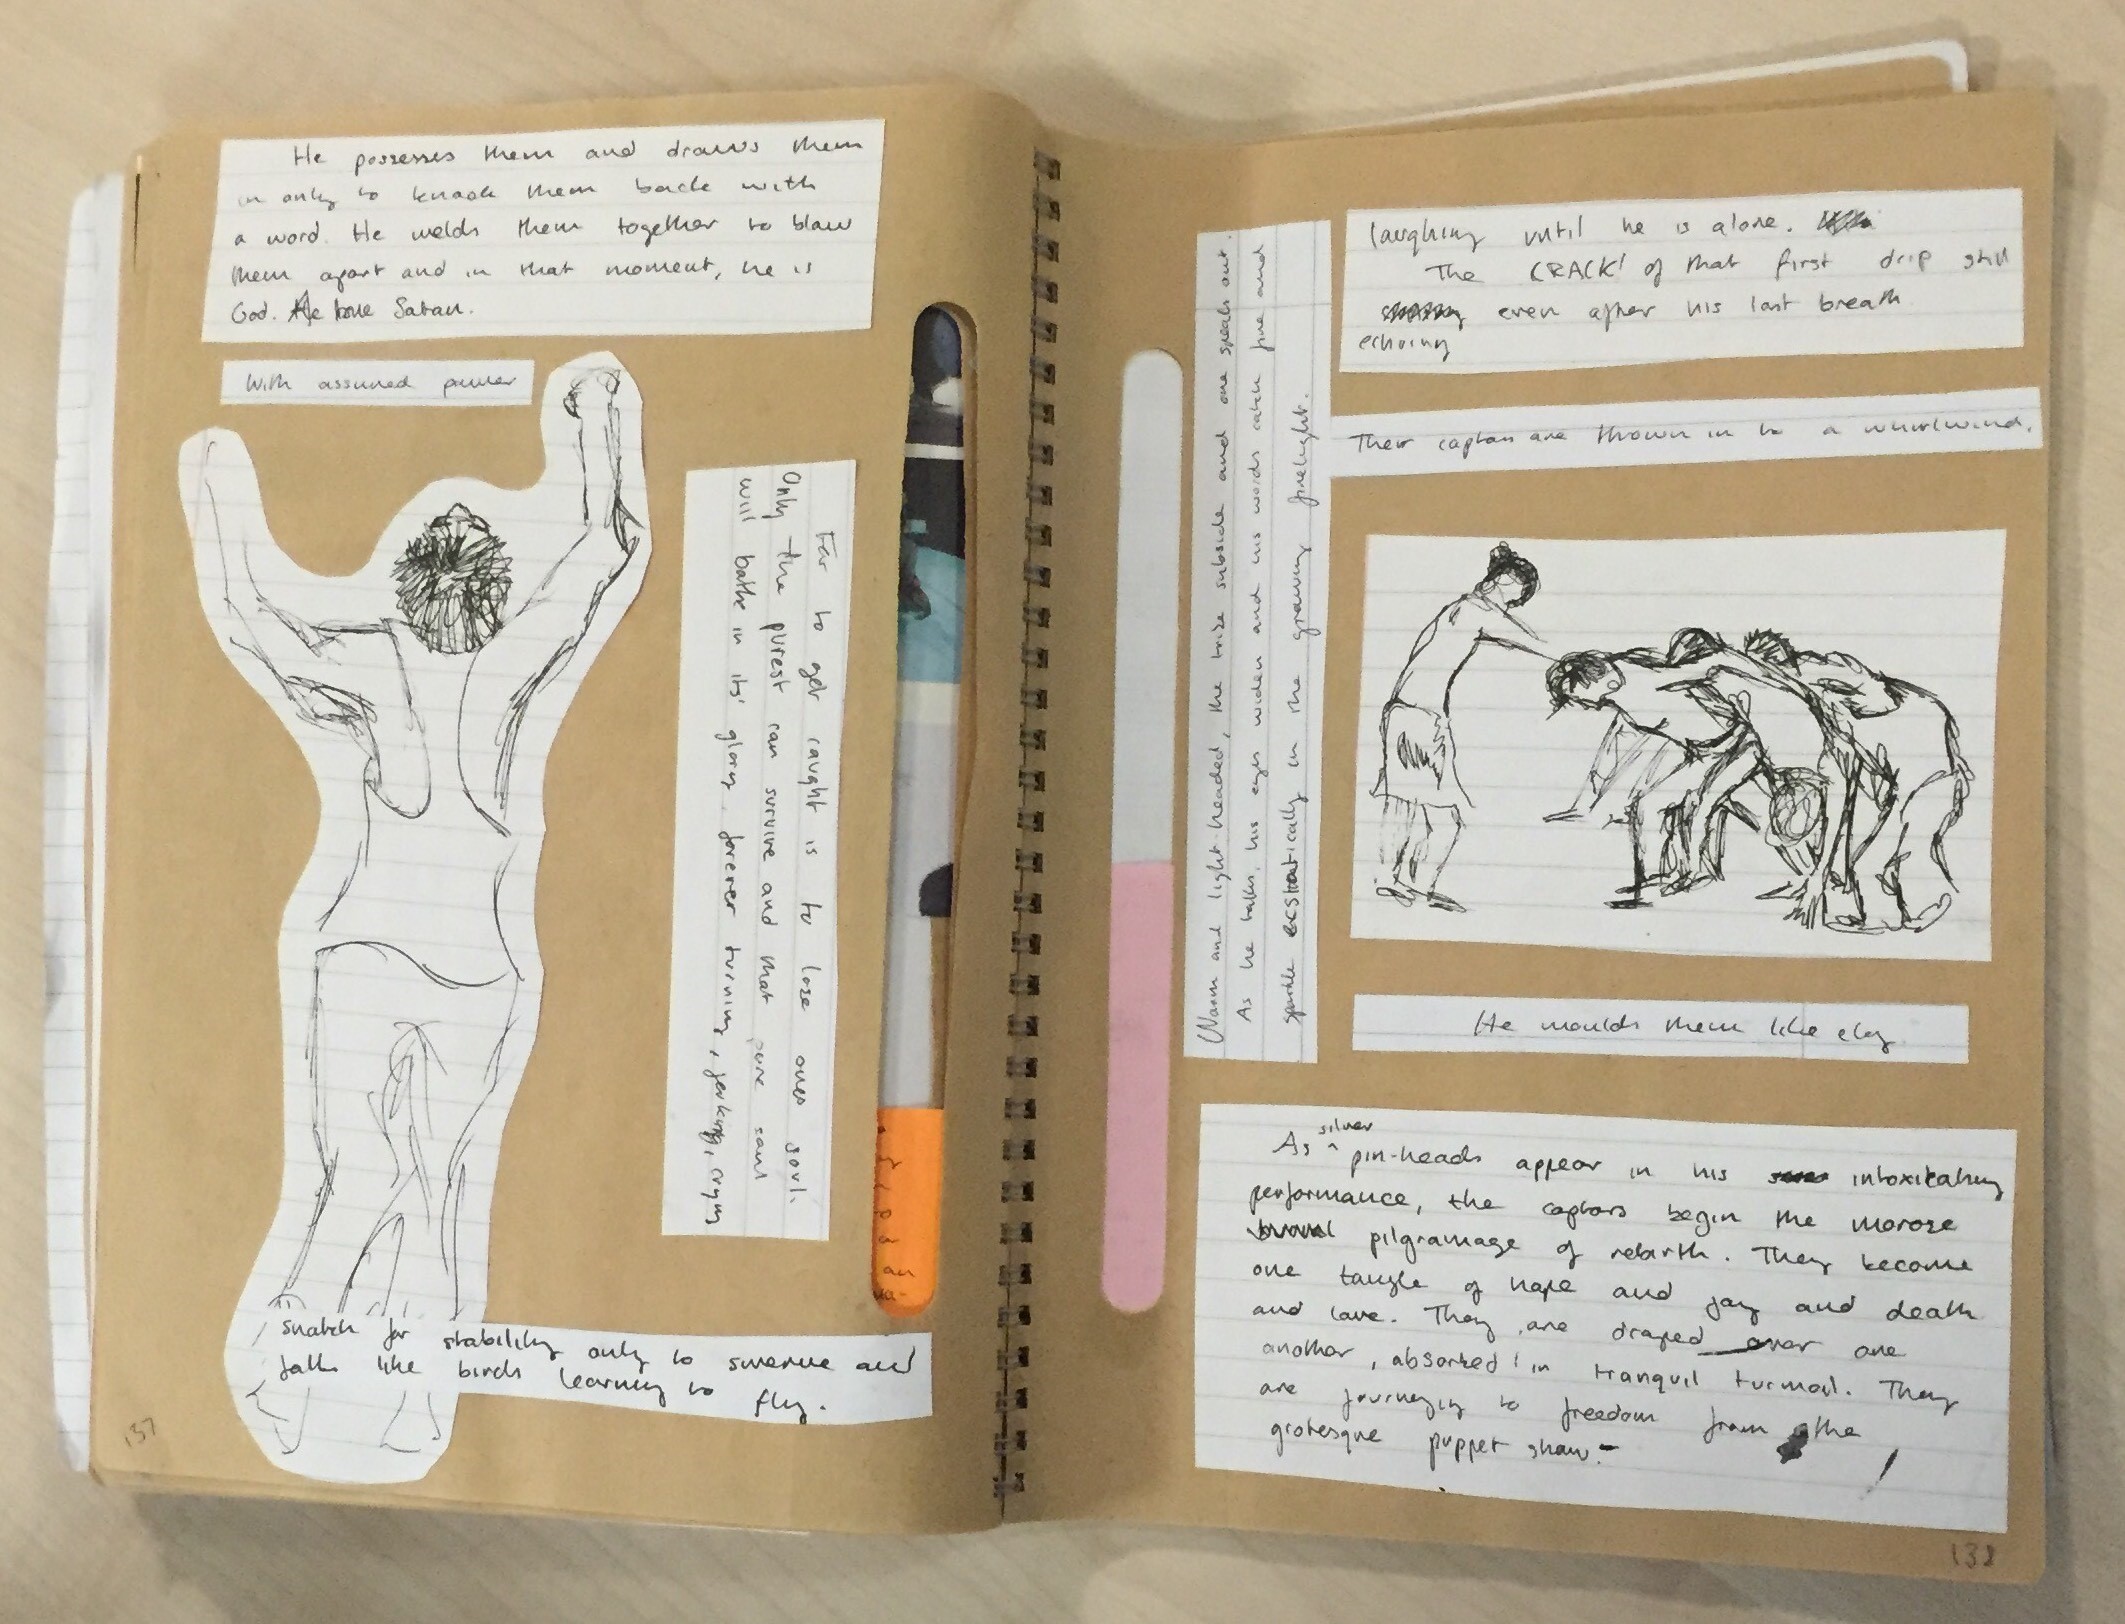 He possesses them and draws them
in only to knock them back with
a word. He welds them together to blow
them apart and in that moment, he is
God. Satan.
With assumed power
For to get caught is to lose ones soul.
Only the purest can survive and that pure soul
will bathe in its' glory, forever turning, jerking, crying
snatch for stability only to swerve and
falls like birds learning to fly.
137
Warm and light-headed, the tribe subside and one speaks out.
As he talks, his eyes widen and his words catch fire and
sparkle ecstatically in the growing firelight.
laughing until he is alone.
The CRACK! of that first drip still
even after his last breath
echoing
Their captors are thrown in to a whirlwind.
He moulds them like clay
silver
As ^ pin-heads appear in his intoxicating
performance, the captors begin the morose
pilgramage of rebirth. They become
one tangle of hope and joy and death
and love. They are draped over one
another, absorbed in tranquil turmoil. They
are journeying to freedom from the
grotesque puppet show.
138